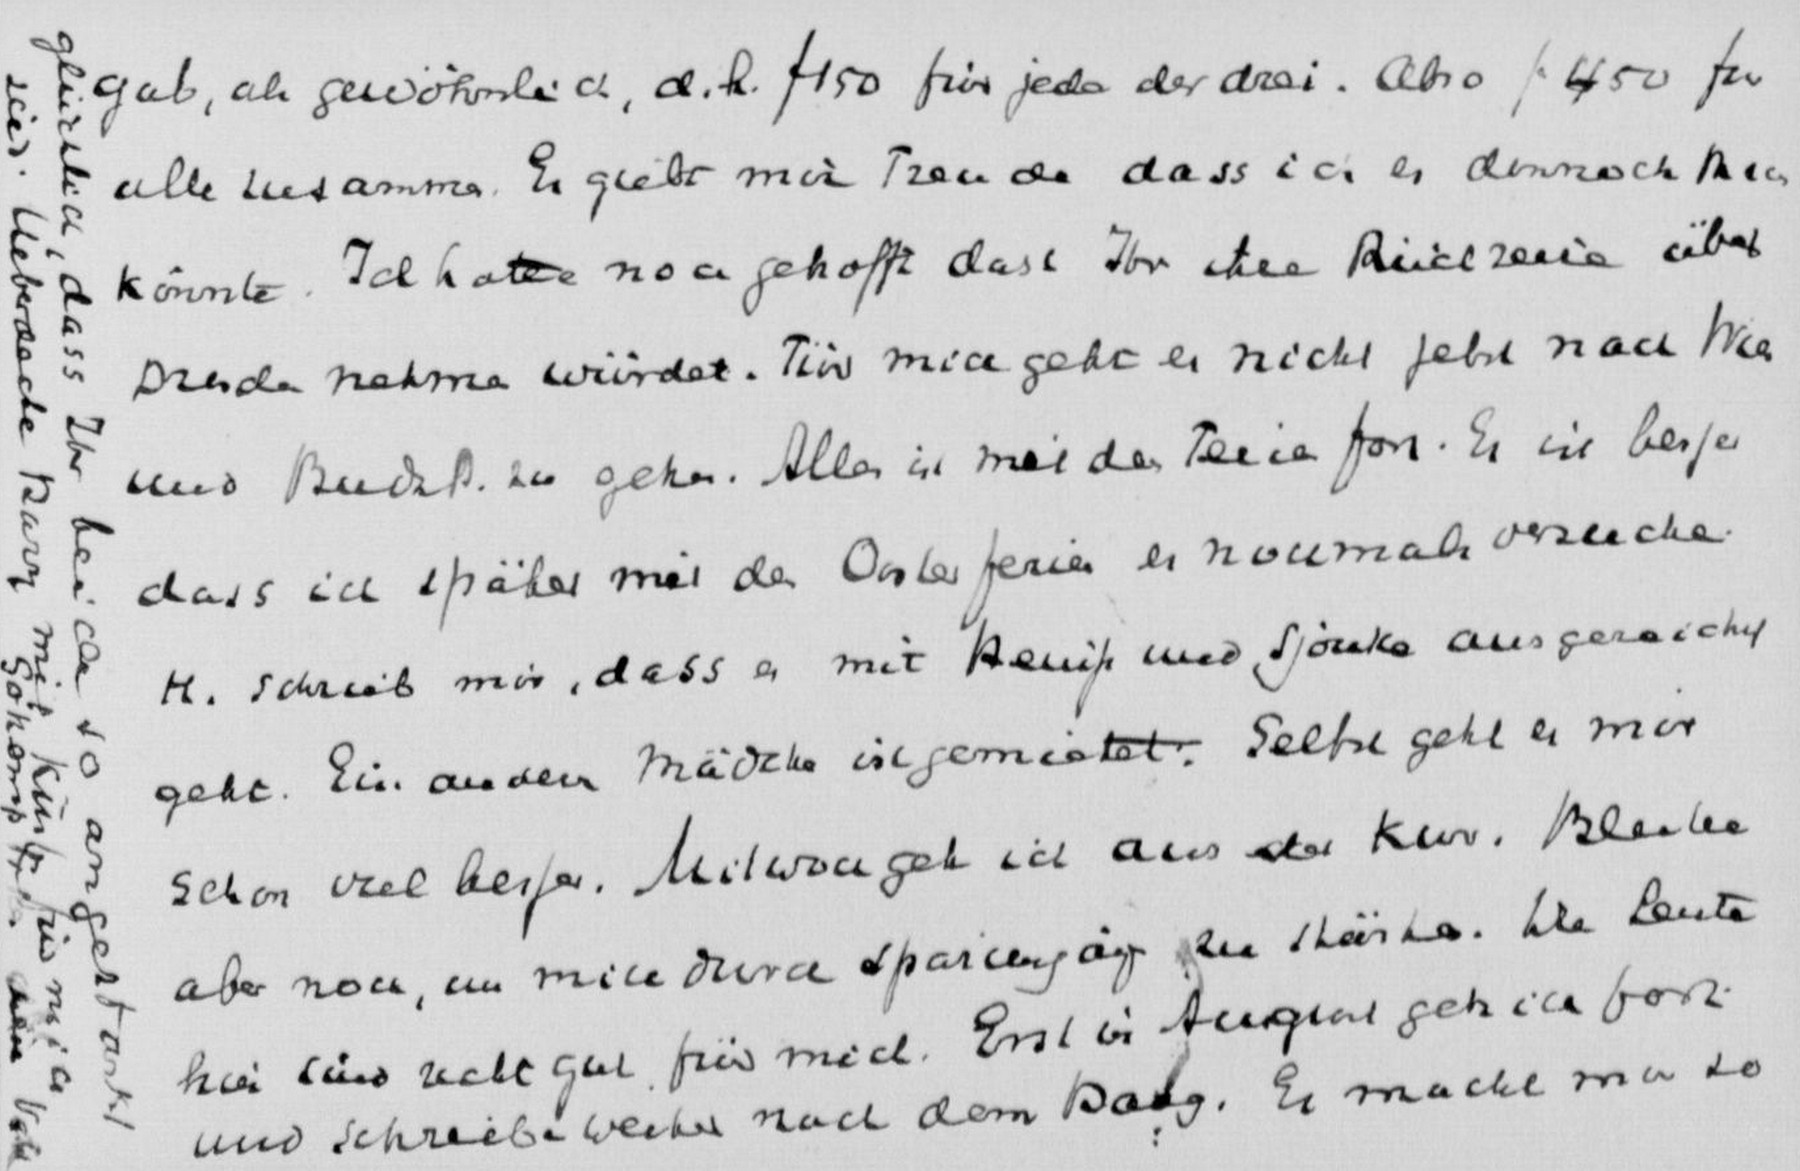 gab, als gewöhnlich, d.h. f150 für jede der drei. Also f 450 für
alle zusammen. Es giebt mir Freude dass ich es dennoch thun
könnte. Ich hatte noch gehofft dass Ihr ihre Rückreise über
Dresden nehmen würdet. Für mich geht es nicht jetzt nach Wien
und Budap. zu gehen. Alles ist mit den Ferien fort. Es ist besser
dass ich später mit den Oosterferien es nochmals versuche.
H. schrieb mir, dass es mit und Sjouke ausgezeichnet
geht. Ein anderes Mädchen ist gemietet. Selbst geht es mir
schon viel besser. Mitwoch geh ich aus der Kur. Bleibe
aber noch, um mich durch Spaziergänge zu stärken. Die Leute
hier sind recht gut für mich. Erst in August geh ich fort
und schreibe weiter nach dem Haag. Es macht mir so
glücklich, dass Ihr beiden so angestarkt
seid. Ueberdenke mit Küsse für mich